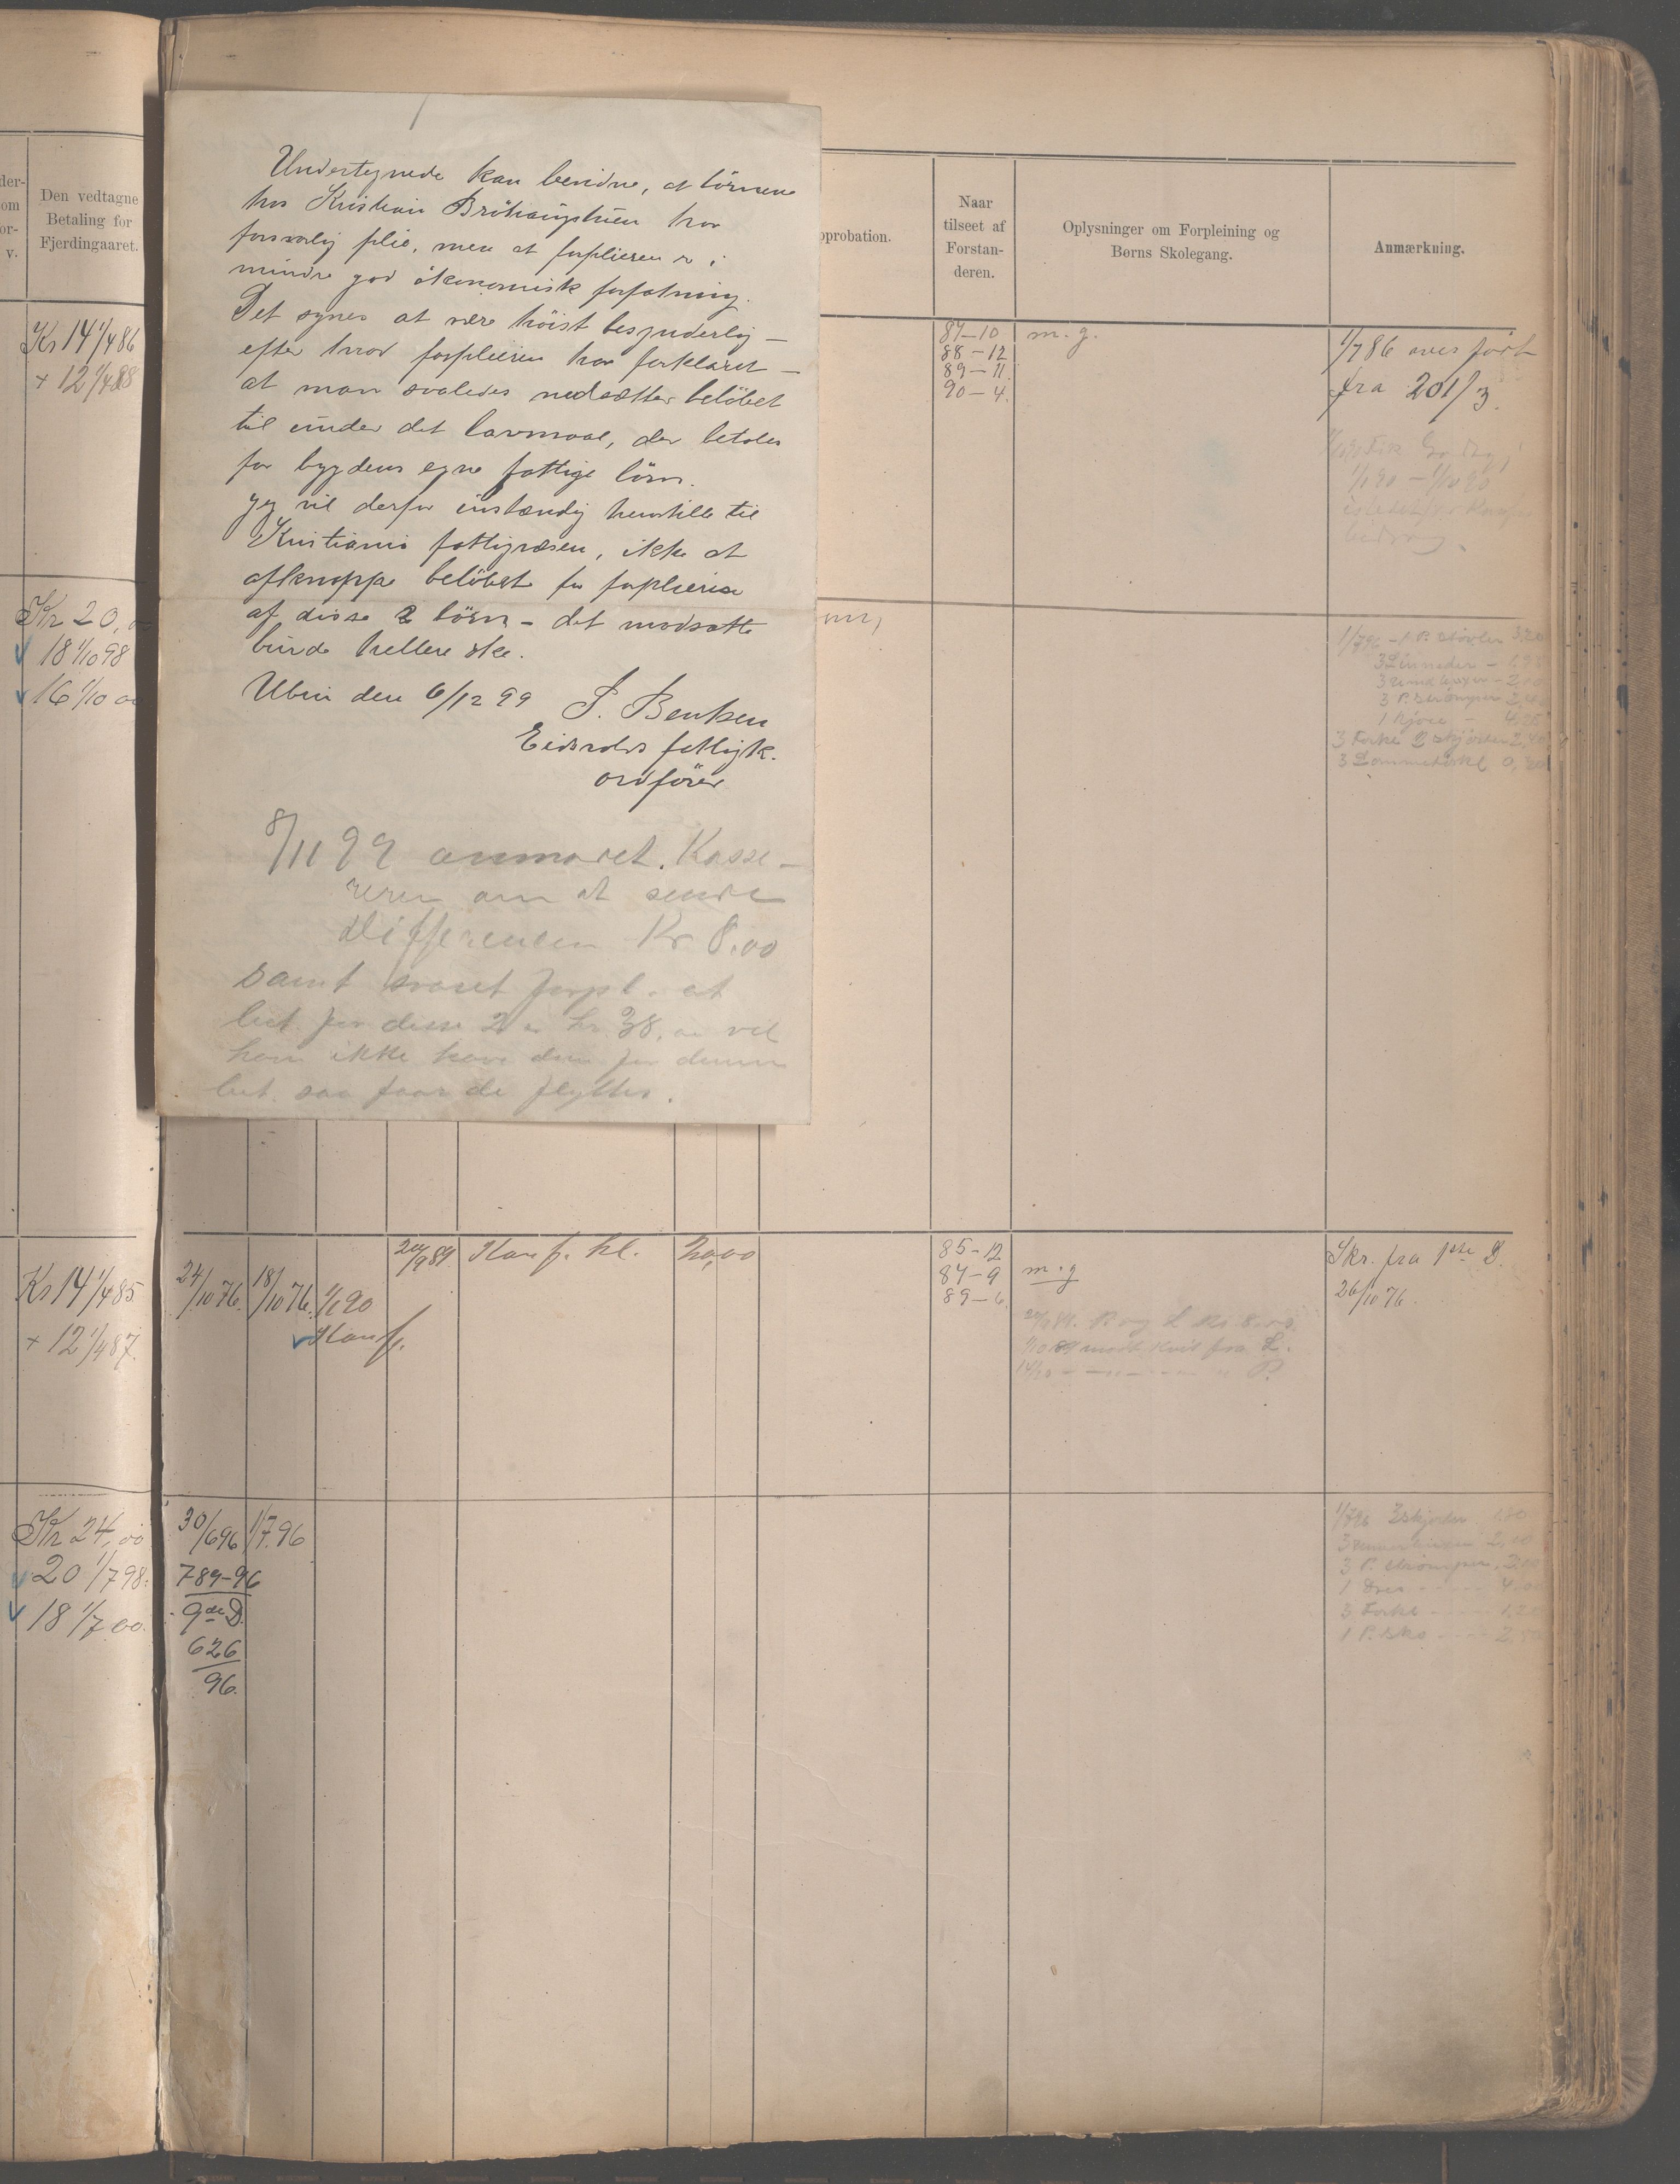 Undertegnede kan bevidne, at börnene
hos Kristian Bröhaugstuen har
forsvarlig pleie, men at forpleieren er i
mindre god ökonomisk forfatning.
Det synes at være höist besynderlig –
efter hvad forpleieren har forklaret –
at man saaledes nedsætter belöbet
til under det lavmaal, der betales
for bygdens egne fattige börn.
Jeg vil derfor instændig henstille til
Kristiania fattigvæsen, ikke at
afknappe belöbet for forpleierne
af disse 2 börn – det modsatte
burde hellere ske.
Ubni den 6/12 99
S. Bentsen
Eidsvolds fattigk.
ordförer
8/11 99 anmodet. Kasse-
reren om at sende
Differencen Kr 8.00
samt svaret forpl. at
bet. for disse 2 er kr. 38, vil
han ikke have dem for denne
bet. saa faar de flyttes.
der-
om
or-
v.
Den vedtagne
Betaling for
Fjerdingaaret.
Kr 14 1/4 86
+ 12 1/4 88
Kr 20,
18 1/10 98
16 1/10 00
Kr 14 1/4 85
+ 12 1/4 87.
Kr 24,00
20 1/7 98.
18 1/7 00.
probation.
Naar
tilseet af
Forstan-
deren.
Oplysninger om Forpleining og
Børns Skolegang.
Anmærkning.
87–10
88–12
89–11
90–4.
m. g.
1/7 86 overfört
fra 201/3.
1/1 90 – 1/10 90
1/7 96 – 1 P. Støvler 3,20
3 Linneder –
3 P. Strömper
1 Kjole –
3 Forkl. 2 Skjørter 2,40
3 Lommetørkl. 0,
24/10 76.
18/10 76.
1/1 90
Konf.
20/9 89
Konf. kl.
20,00
85–12
87–9
89–6.
m. g
1/10 89 modt. Kvit fra L.
Skr. fra 1ste D.
26/10 76.
30/6 96
1/7 96
789–96
9de D.
626
96.
1/7 96 2 Skjorter 1,80
3 P. Strömper,
1 Dres – 4,00
3 Forkl – 1,20
1 P. Sko – 2,